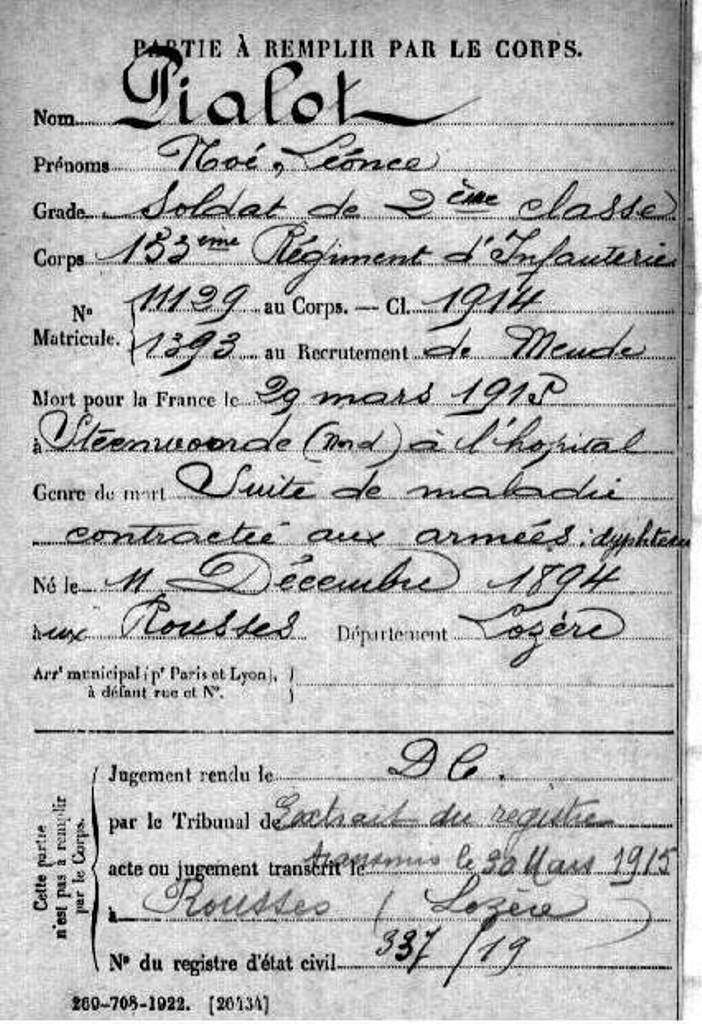 PARTIE À REMPLIR PAR LE CORPS.
Nom Pialot
Prénoms Noé, Léonce
Grade Soldat de 2ème classe
Corps 153eme Régiment d'Infanterie
No Matricule. 11129 au Corps. — Cl. 1914
1393 au Recrutement de Mende
Mort pour la France le 29 mars 1915
à Stéenwoorde (Nord) à l'hopital
Genre de mort Suite de maladie
contractée aux armées:
Né le 11 Décembre 1894
aux Rousses Département Lozère
Arrt municipal (pr Paris et Lyon),
à défaut rue et No.
Cette partie
n'est pas à remplir
par le Corps.
Jugement rendu le D C.
par le Tribunal de Extrait du registre
acte ou jugement transcrit le transmis le 30 Mars 1915
à Rousses (Lozère)
No du registre d'état civil 337/19
269-708-1922. [26434]